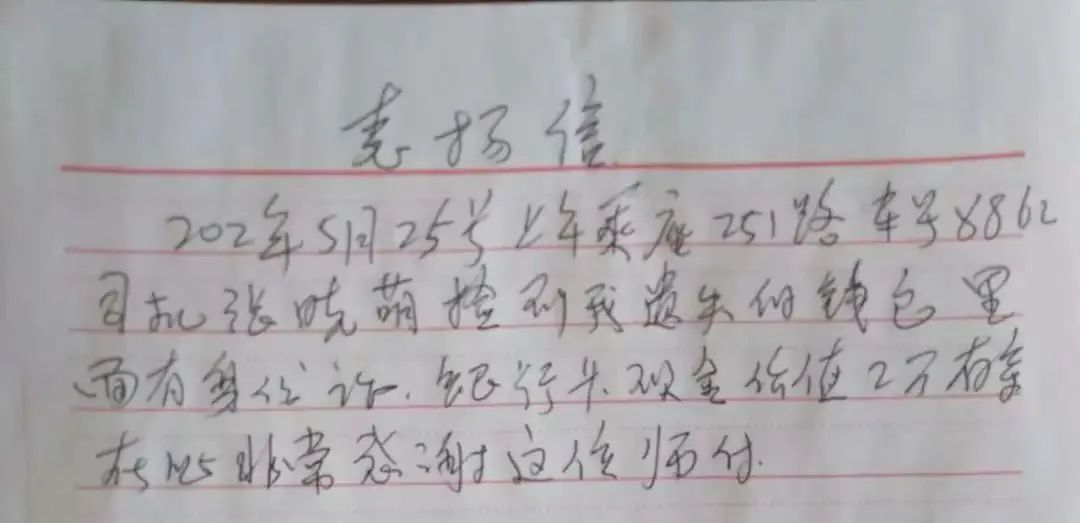 表扬信
202年5月25号上午乘座251路车号8862
司机张晓萌捡到我遗失的钱包里
面有身份证.银行卡.现金价值2万有余
在此非常感谢这位师付.